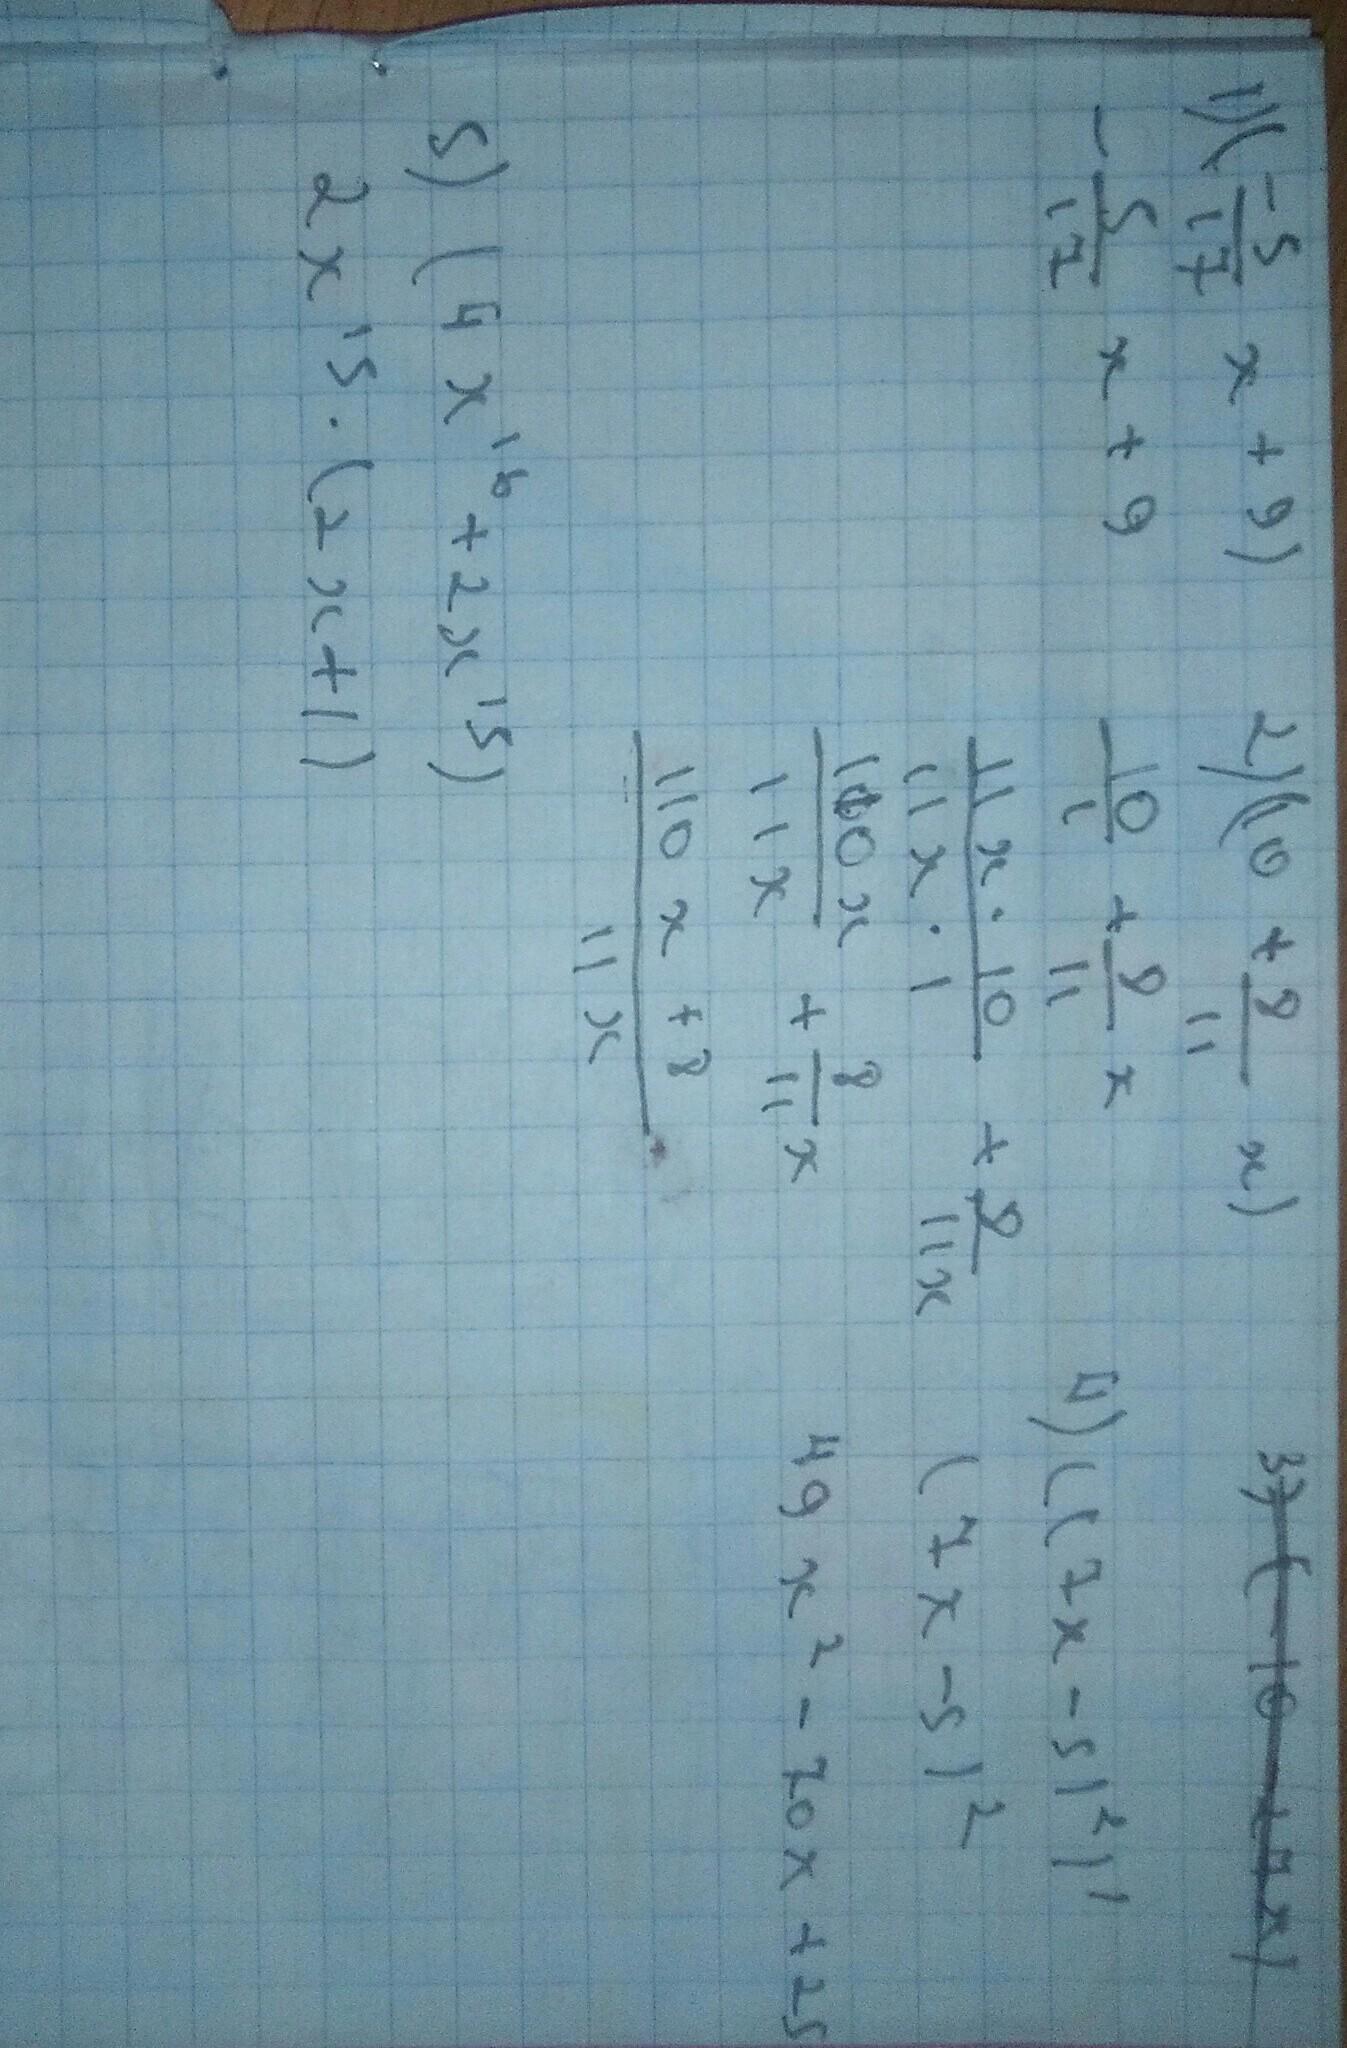 1) (-5/17 x + 9)
- 5/17 x + 9
2) (10 + 8/11 x)
10/1 + 8/11 x
11x · 10 / 11x · 1 + 8/11x
110x / 11x + 8/11 x
110x + 8 / 11x
3) (-10 - 17x)
4) ((7x - 5)²)'
(7x - 5)²
49x² - 70x + 25
5) (4x¹⁶ + 2x¹⁵)
2x¹⁵ · (2x + 1)